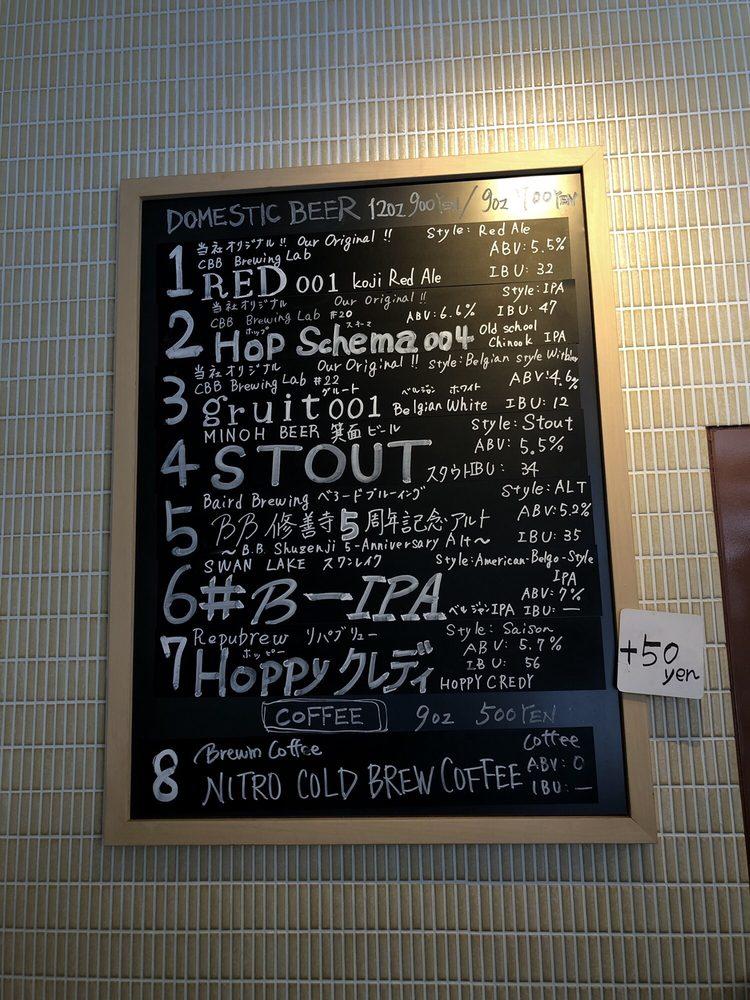 DOMESTIC BEER 12oz 900YEN / 9oz 700YEN
当社オリジナル!! Our Original!! Style: Red Ale
CBB Brewing Lab ABV: 5.5%
1 RED 001 koji Red Ale IBU: 32
当社オリジナル Our Original!! Style: IPA
CBB Brewing Lab #20 ABV: 6.6% IBU: 47
ホップ スキーマ
2 Hop Schema 004 Old school Chinook IPA
当社オリジナル Our Original!! Style: Belgian Style
CBB Brewing Lab #22 ABV: 4.6%
グルート ベルジャン ホワイト
3 gruit 001 Belgian White IBU: 12
MINOH BEER 箕面ビール Style: Stout
ABV: 5.5%
4 STOUT スタウト IBU: 34
Baird Brewing ベアードブルーイング Style: ALT
5 BB 修善寺5周年記念アルト ABV: 5.2%
~B.B. Shuzenji 5-Anniversary Alt~ IBU: 35
SWAN LAKE スワンレイク Style: American-Belgo-Style IPA
ABV: 7%
6 #B-IPA ベルジャンIPA IBU: —
Repubrew リパブリュー Style: Saison
ABV: 5.7%
ホッピー IBU: 56
7 Hoppy クレディ HOPPY CREDY
+50 yen
COFFEE 9oz 500YEN
Brewin Coffee Coffee
8 NITRO COLD BREW COFFEE ABV: 0
IBU: —